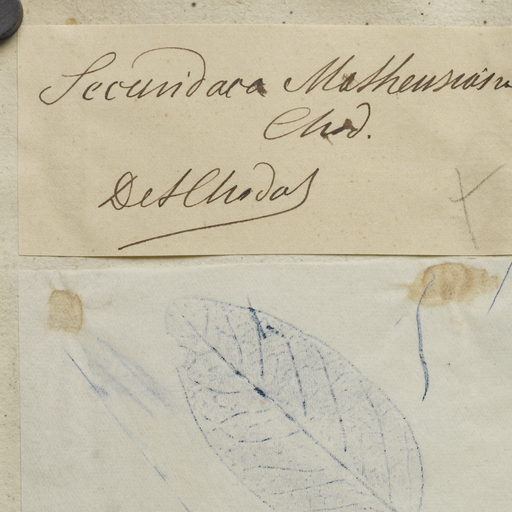 Securidaca Mathewsian
Chod.
Det Chodat